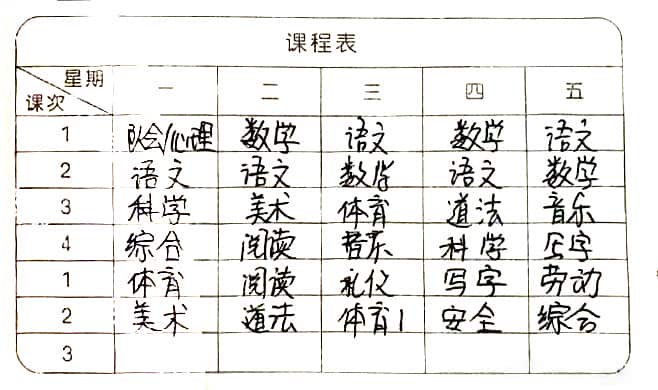 课程表
星期 一 二 三 四 五
课次
1 队会/心理 数学 语文 数学 语文
2 语文 语文 数学 语文 数学
3 科学 美术 体育 道法 音乐
4 综合 阅读 音乐 科学 写字
1 体育 阅读 礼仪 写字 劳动
2 美术 道法 体育1 安全 综合
3